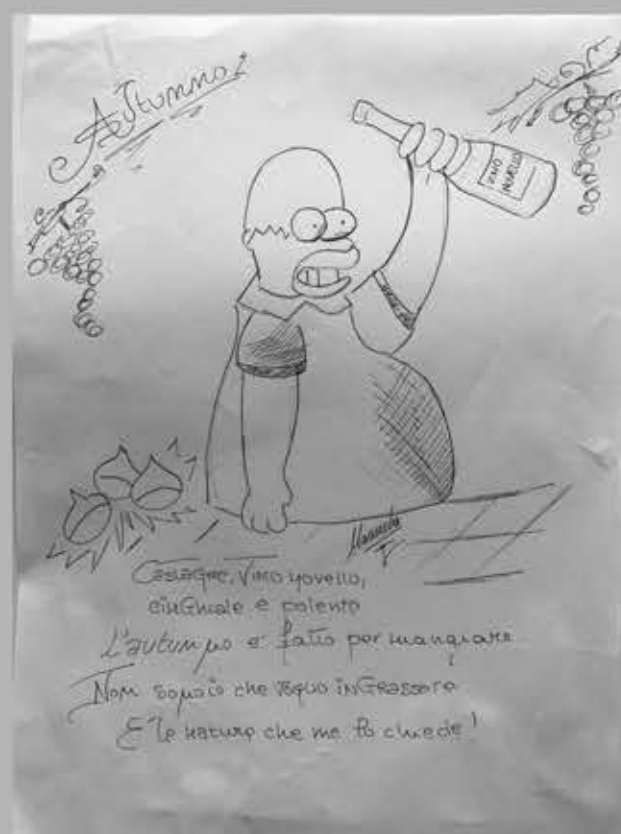 Autunno!
VINO
NOVELLO
Castagne, Vino novello,
cinGhiale e polenta
L'autunno è fatto per mangiare
Non sono io che voglio inGrassare
È la natura che me lo chiede!